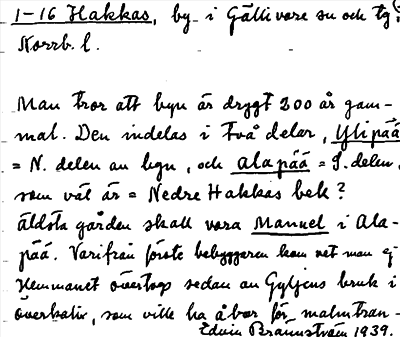 1-16 Hakkas, by i Gällivare sn och tg
Norrb. l.
Man tror att byn är drygt 300 år gam-
mal. Den indelas i två delar, Ylipää
= N. delen av byn, och alapää = S. delen,
som väl är = Nedre Hakkas bek?
äldsta gården skall vara Manuel i Ala-
pää. Varifrån förste bebyggaren kom vet man ej
Hemmanet övertogs sedan av Gyljens bruk i
Överkalix, som ville ha åbor för malmtran-
Edvin Brännström 1939.